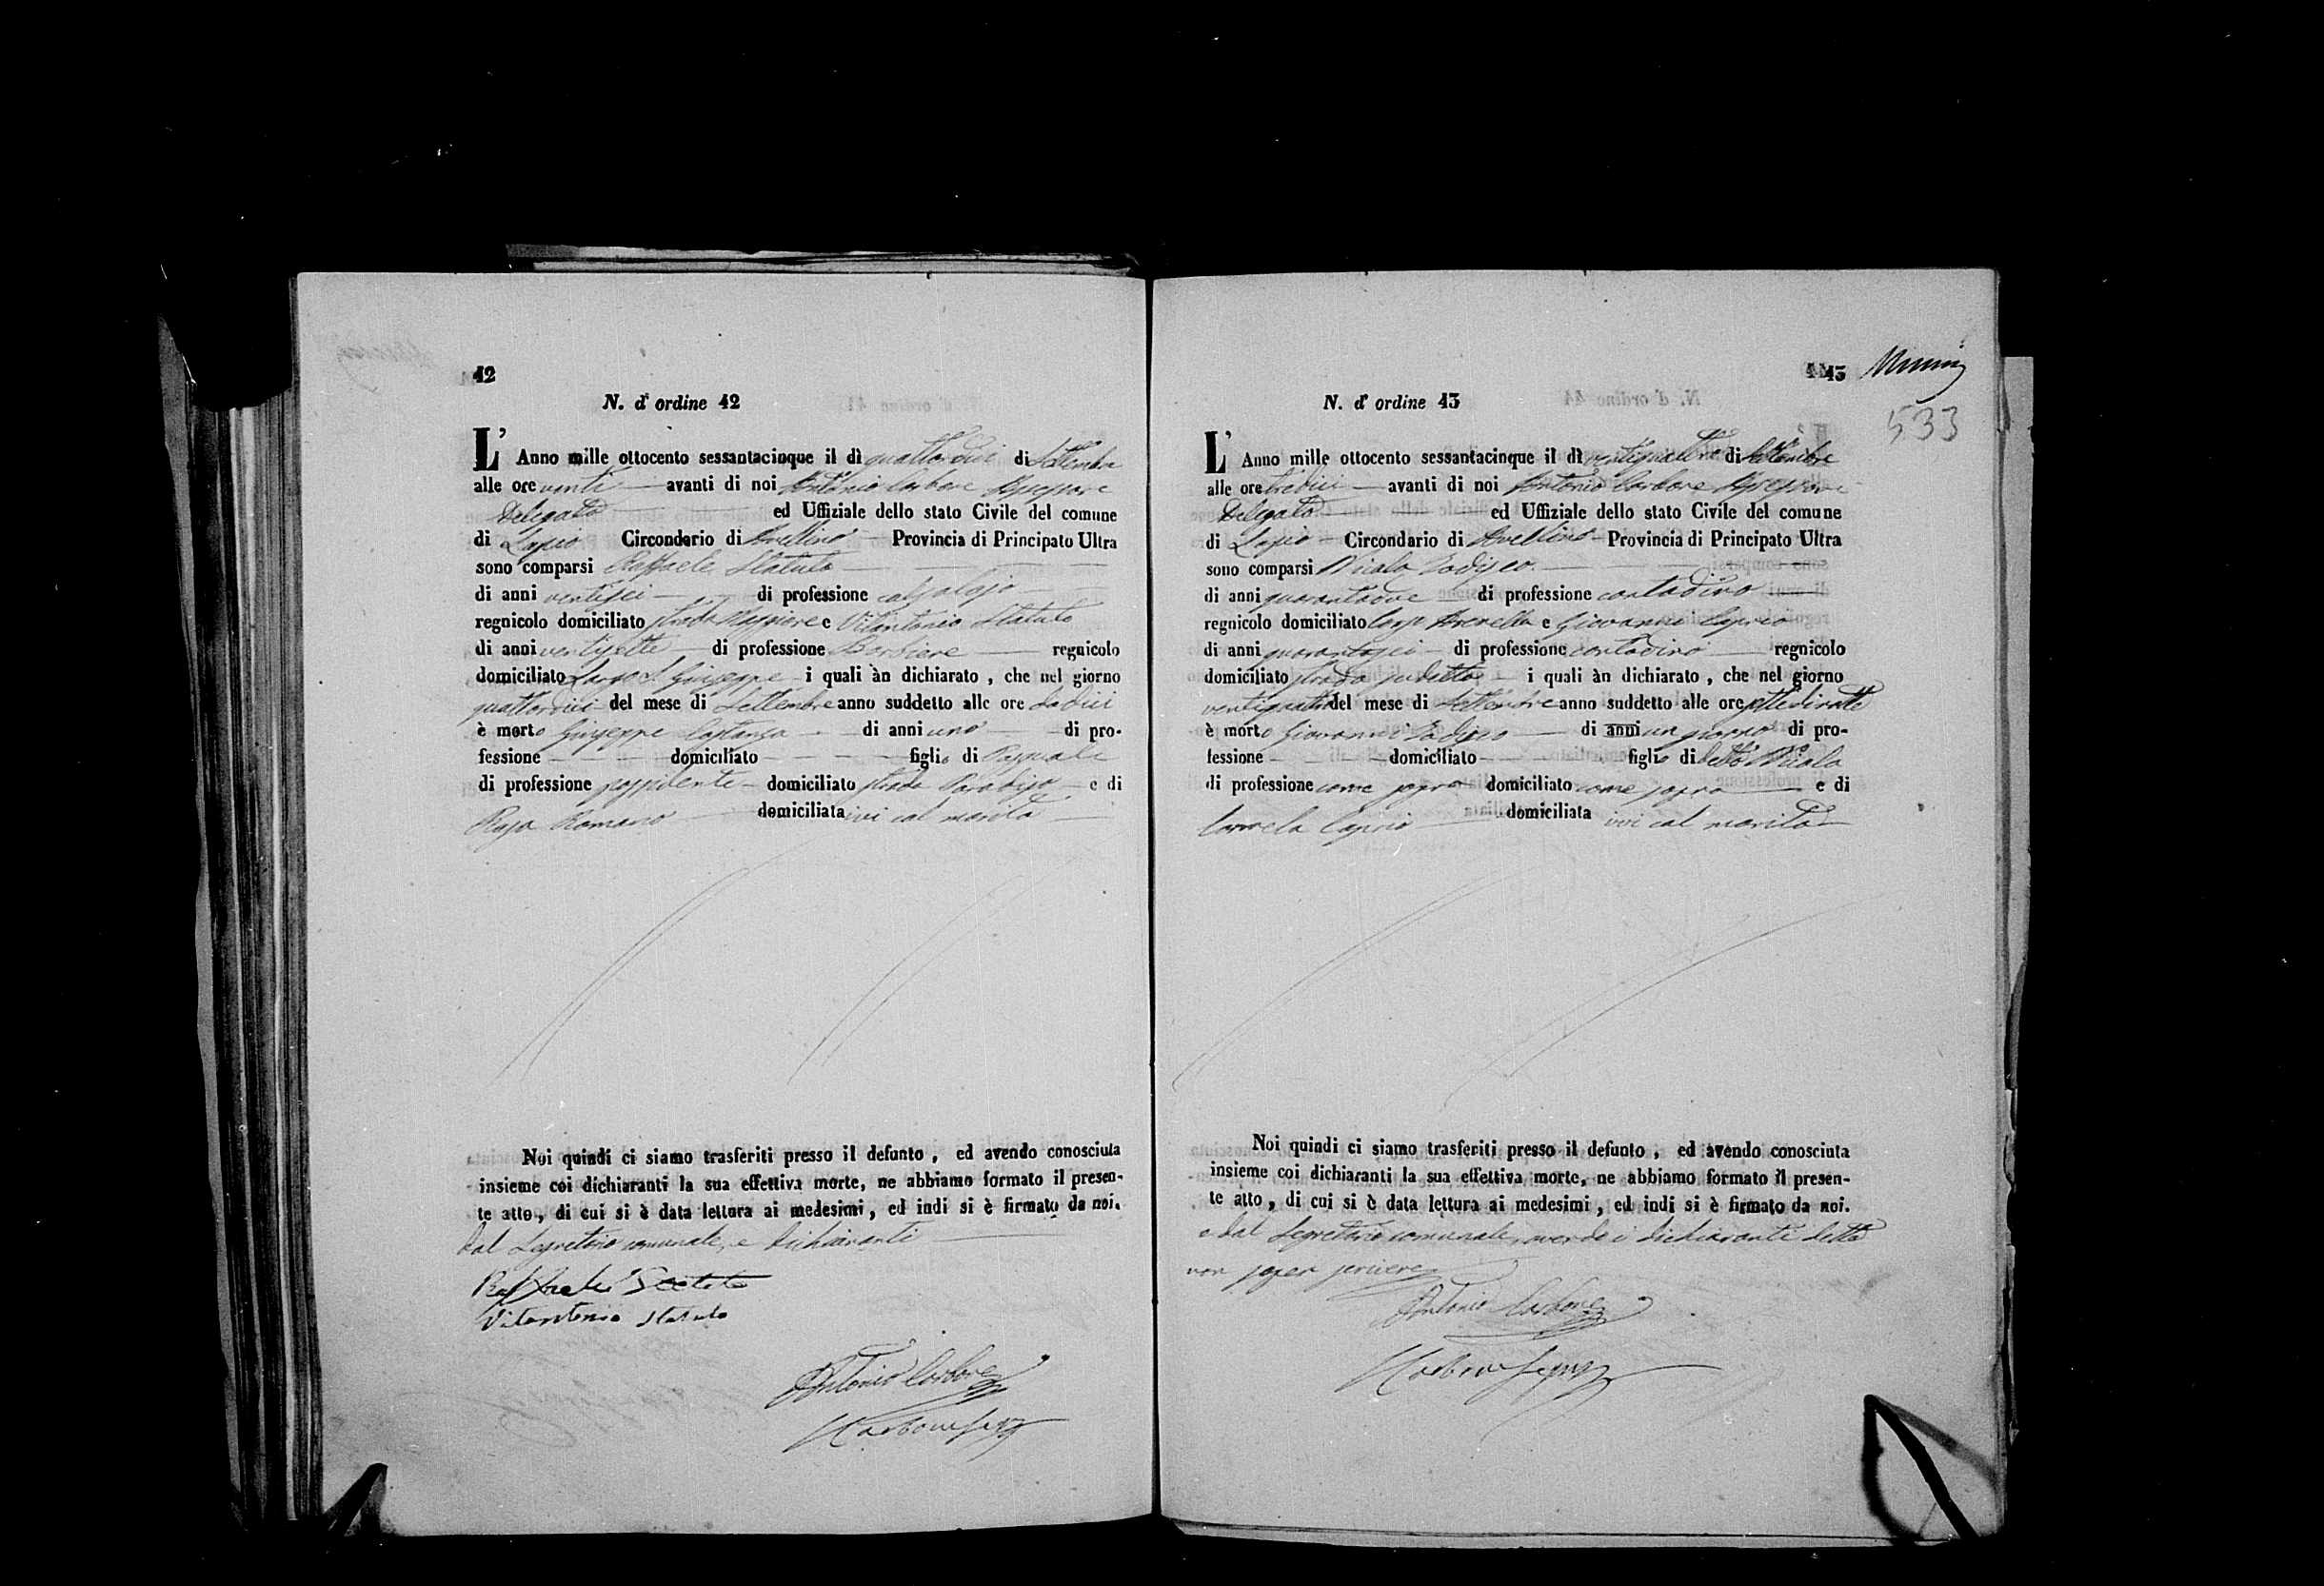 42
N. d' ordine 42
L' Anno mille ottocento sessantacinque il dì quattordici di Settembre
alle ore venti avanti di noi Antonio Carbone Assessore
Delegato ed Uffiziale dello stato Civile del comune
di Lapio Circondario di Avellino Provincia di Principato Ultra
sono comparsi Raffaele Statuto
di anni ventisei di professione calzolajo
regnicolo domiciliato strada Maggiore e Vitantonio Statuto
di anni ventisette di professione Barbiere regnicolo
domiciliato Largo S. Giuseppe i quali àn dichiarato, che nel giorno
quattordici del mese di Settembre anno suddetto alle ore dodici
è morto Giuseppe Costanza di anni uno di pro-
fessione domiciliato figlio di Pasquale
di professione possidente domiciliato strada Paradiso e di
Rosa Romano domiciliata ivi col marito
Noi quindi ci siamo trasferiti presso il defunto, ed avendo conosciuta
insieme coi dichiaranti la sua effettiva morte, ne abbiamo formato il presen-
te atto, di cui si è data lettura ai medesimi, ed indi si è firmato da noi.
dal Segretario comunale, e dichiaranti
Raffaele Statuto
Vitantonio Statuto
Antonio Carbone
Carbone Seg.
43
533
N. d' ordine 43
L' Anno mille ottocento sessantacinque il dì ventiquattro di Settembre
alle ore tredici avanti di noi Antonio Carbone Assessore
Delegato ed Uffiziale dello stato Civile del comune
di Lapio Circondario di Avellino Provincia di Principato Ultra
sono comparsi Nicola
di anni quarantadue di professione contadino
regnicolo domiciliato Largo Arenella e Giovanni Caprio
di anni quarantasei di professione contadino regnicolo
domiciliato strada sudetta i quali àn dichiarato, che nel giorno
ventiquattro del mese di Settembre anno suddetto alle ore sette di notte
è morto Giovanni di anni un giorno di pro-
fessione domiciliato figlio di detto Nicola
di professione come sopra domiciliato come sopra e di
Carmela Caprio domiciliata ivi col marito
Noi quindi ci siamo trasferiti presso il defunto, ed avendo conosciuta
insieme coi dichiaranti la sua effettiva morte, ne abbiamo formato il presen-
te atto, di cui si è data lettura ai medesimi, ed indi si è firmato da noi.
e dal Segretario comunale, avendo i dichiaranti detto
non saper scrivere
Antonio Carbone
Carbone Seg.